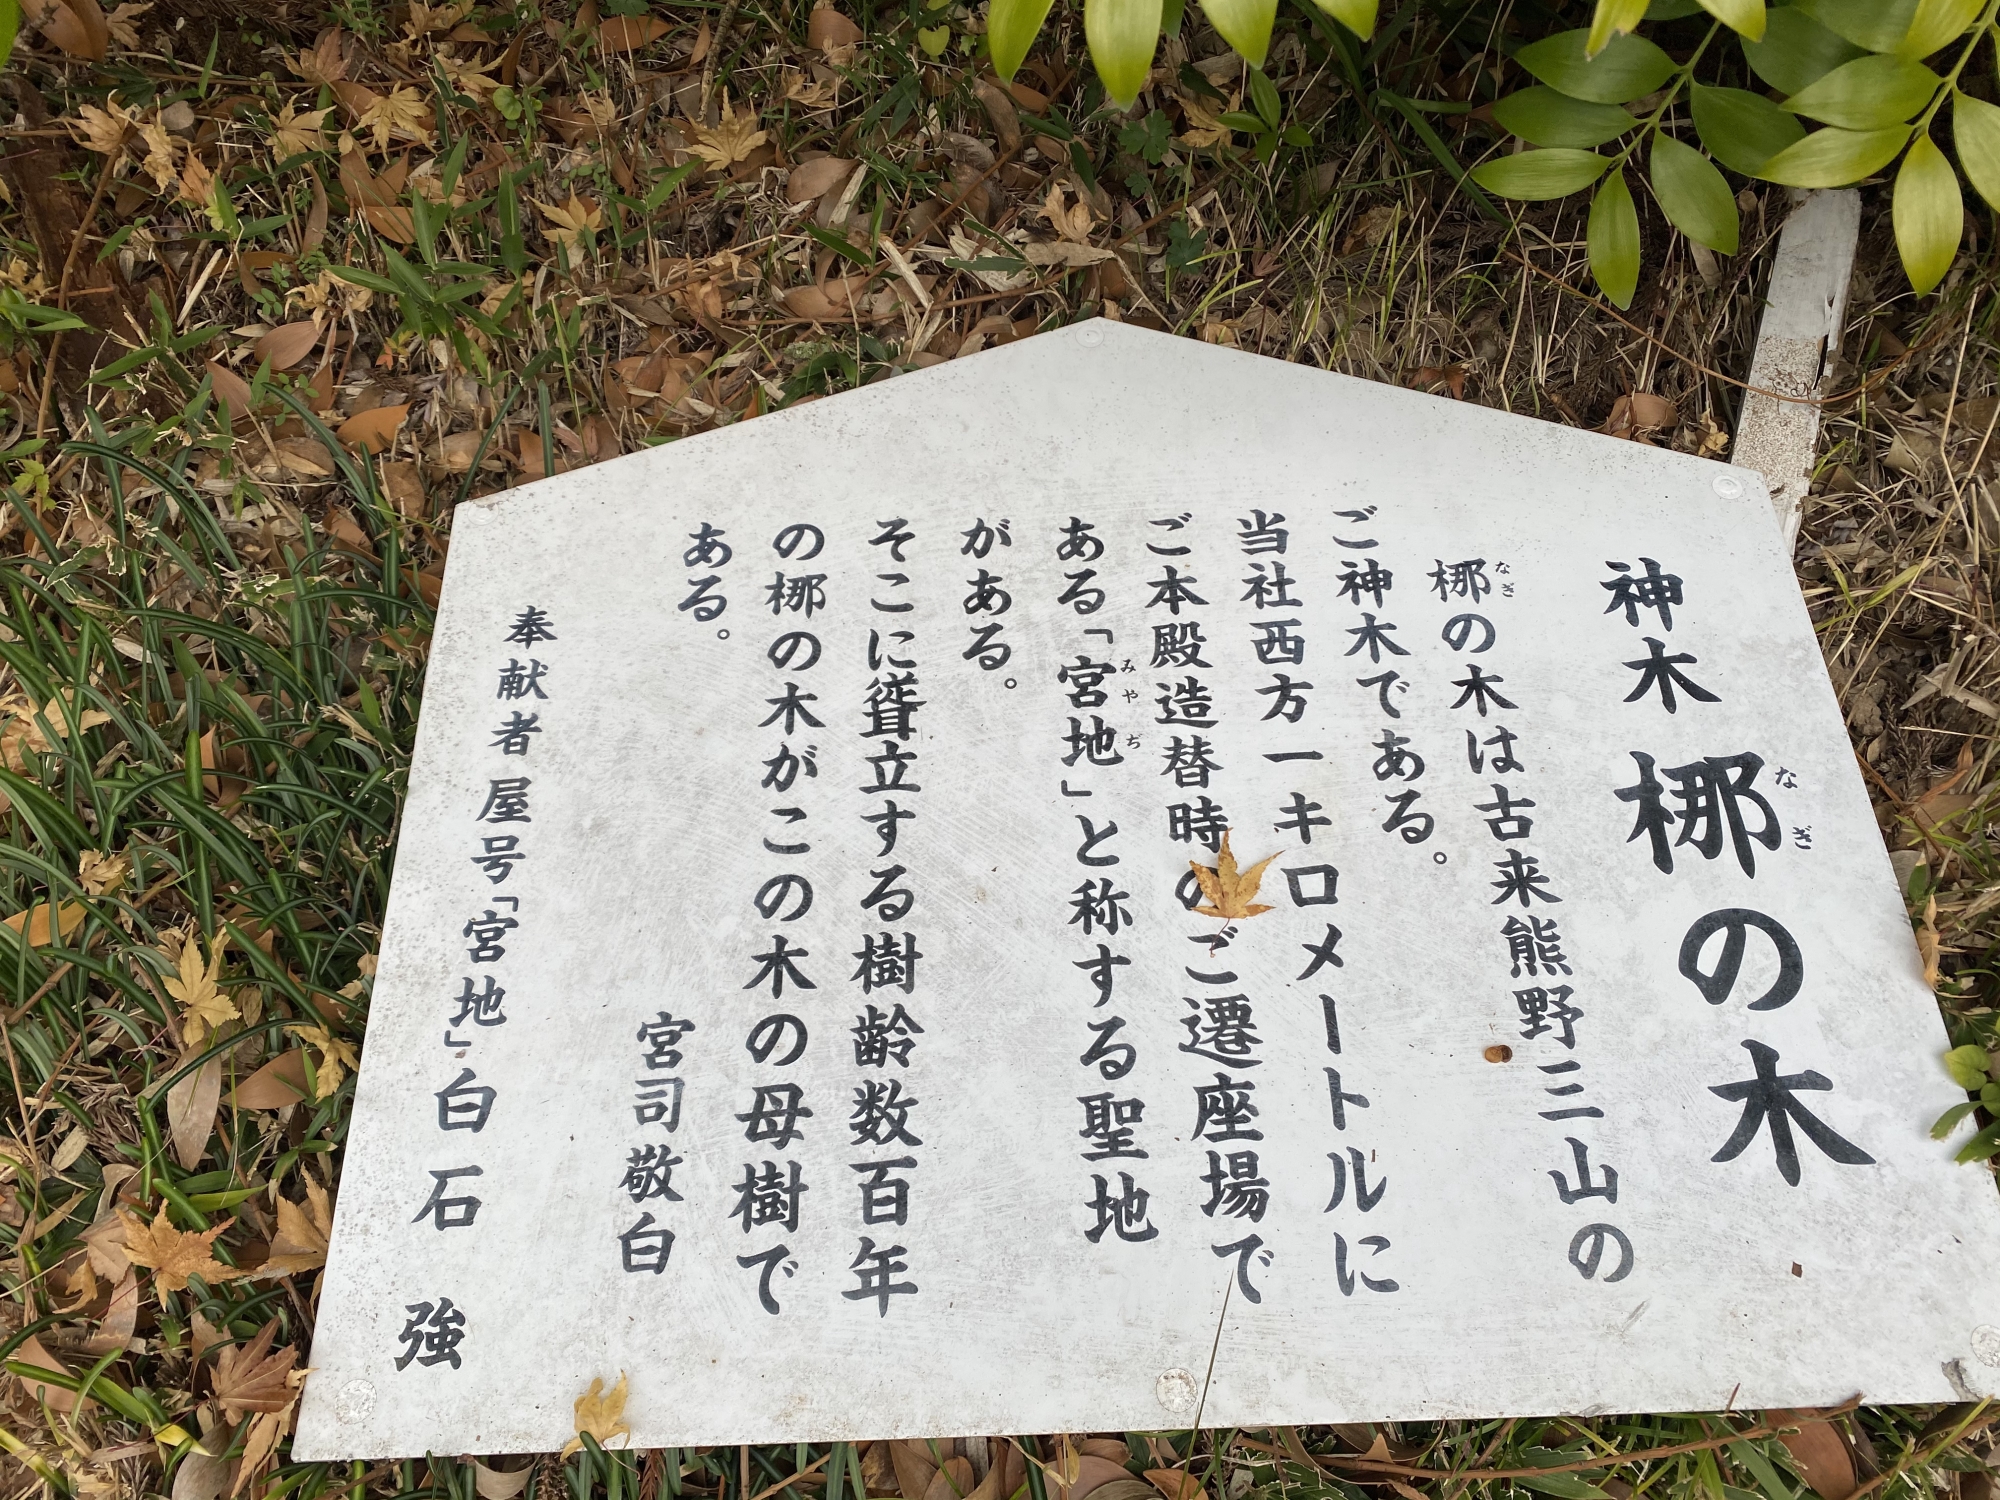 神木 梛の木
なぎ
梛の木は古来熊野三山の
なぎ
ご神木である。
当社西方一キロメートルに
ご本殿造替時のご遷座場で
ある「宮地」と称する聖地
みやぢ
がある。
そこに聳立する樹齢数百年
の梛の木がこの木の母樹で
ある。
宮司敬白
奉献者 屋号「宮地」白石 強